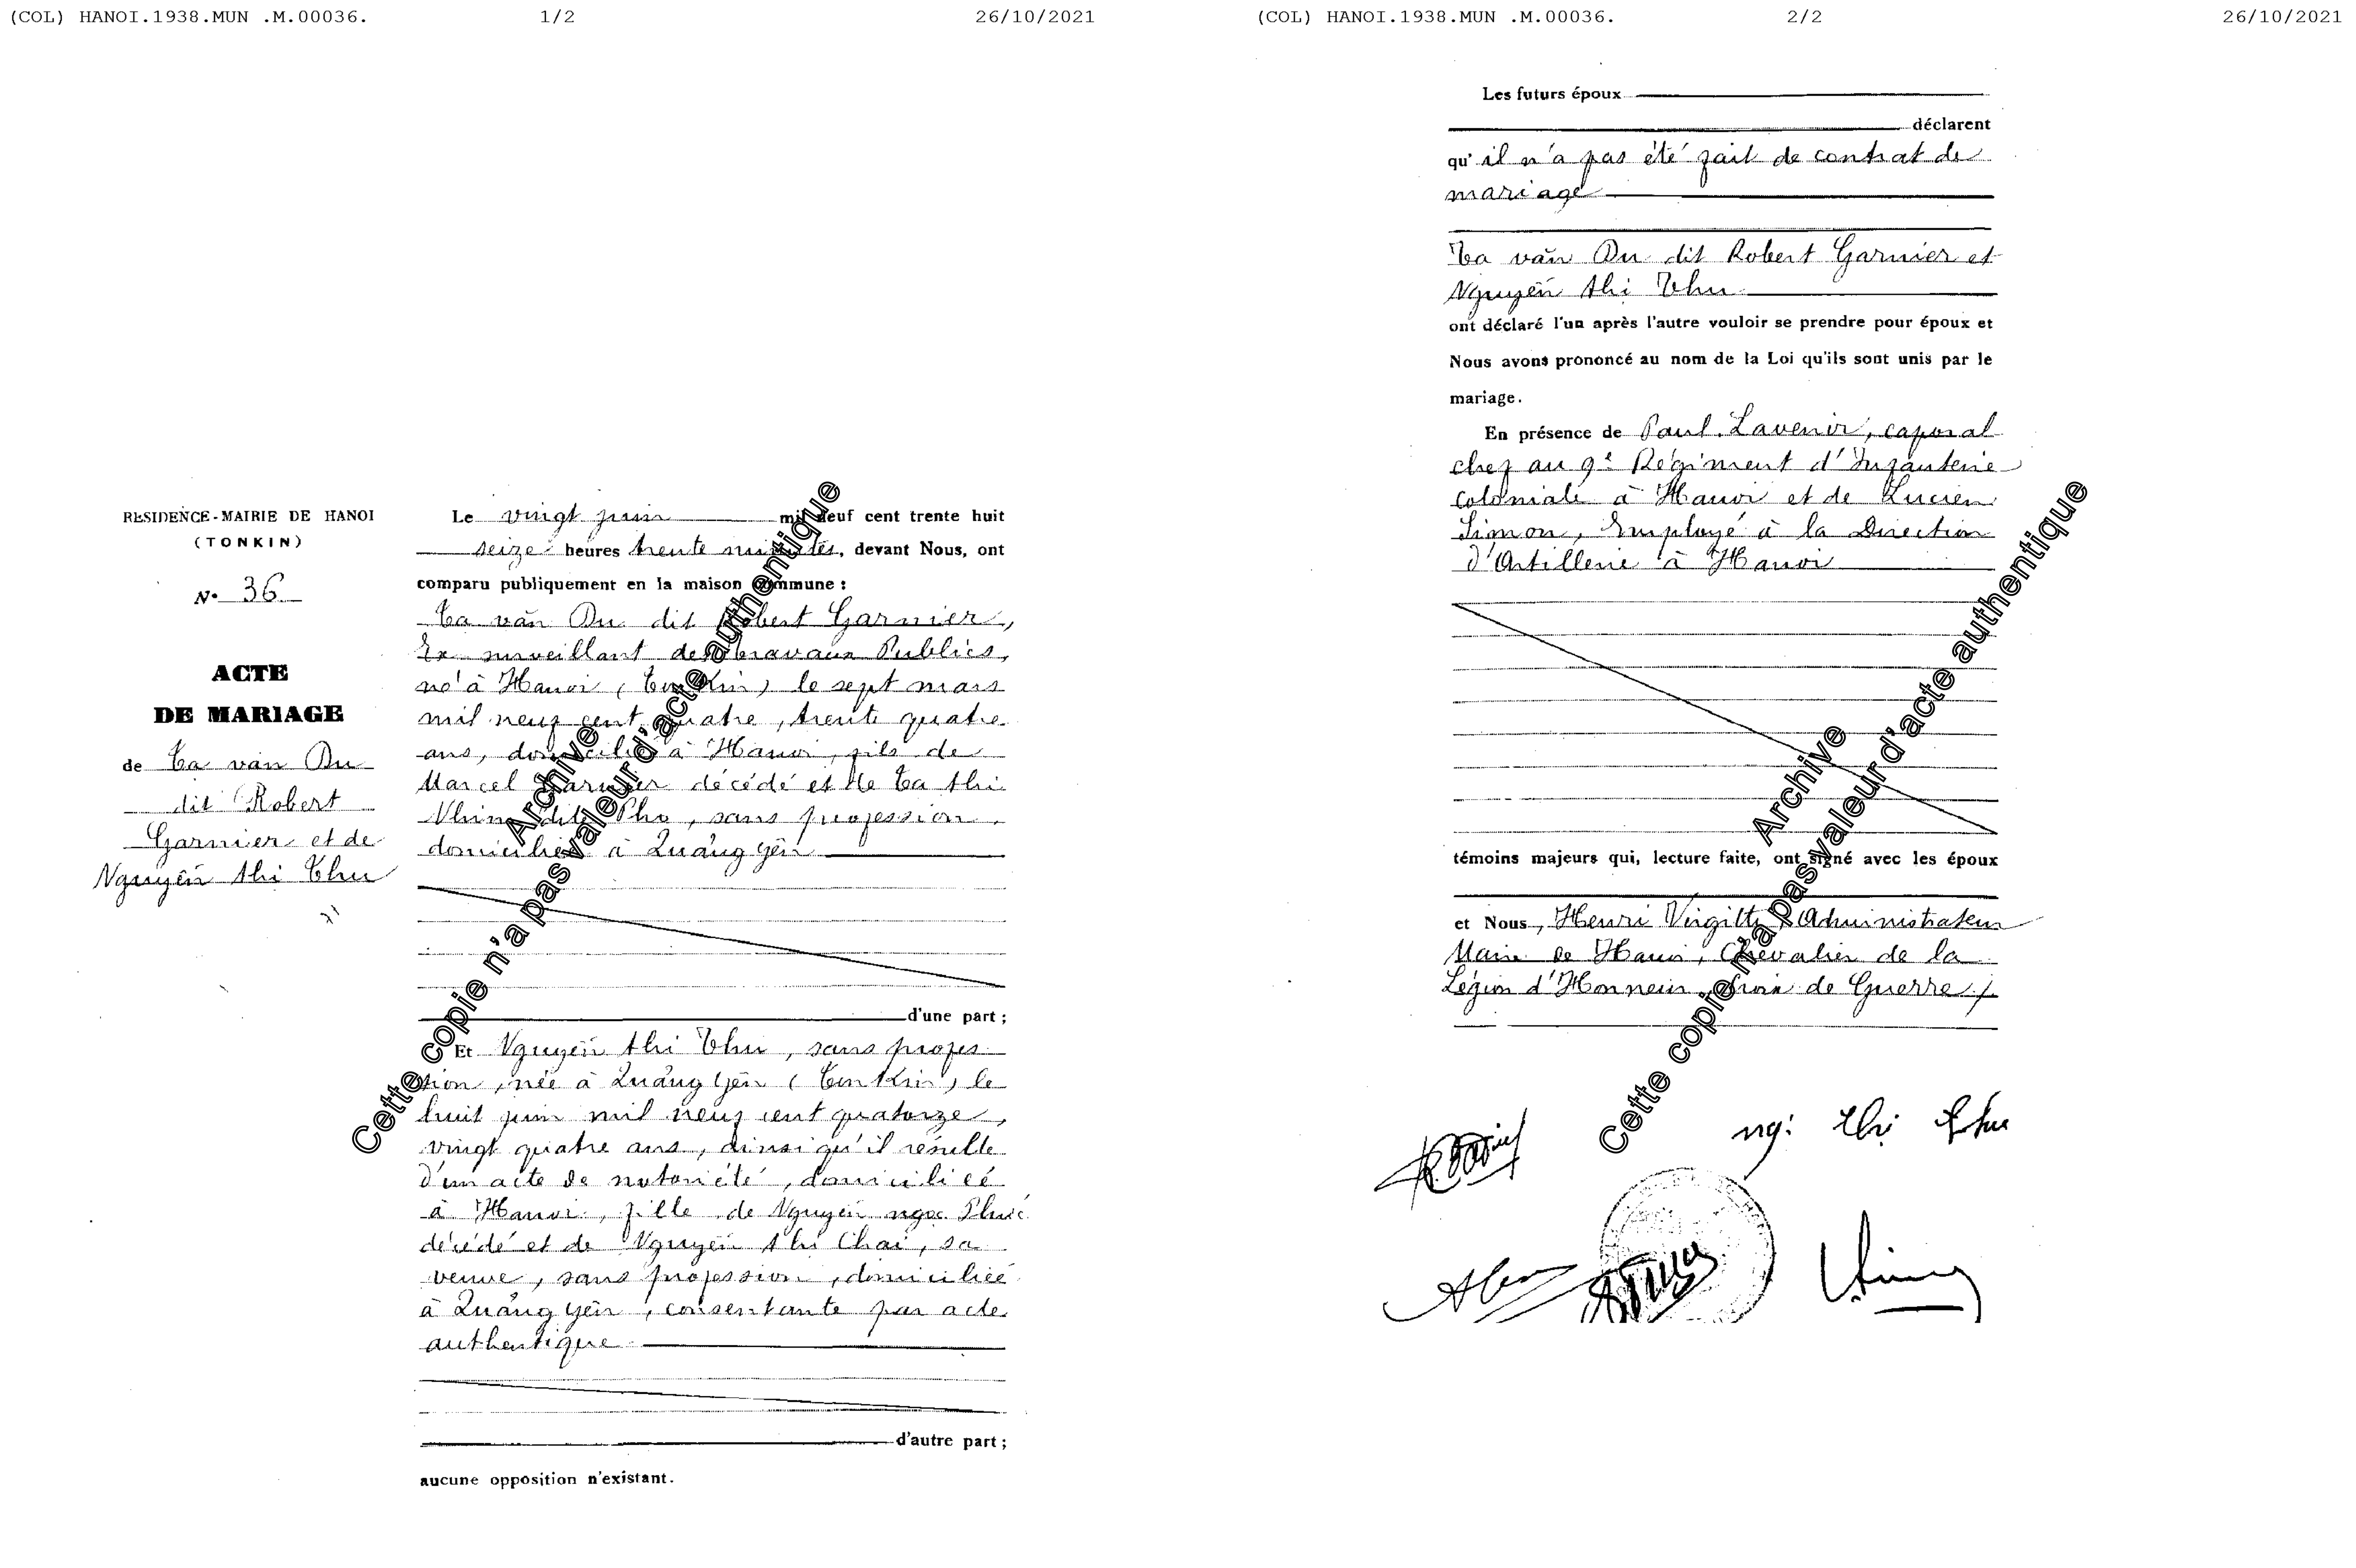 (COL) HANOI.1938.MUN .M.00036. 1/2 26/10/2021
RESIDENCE-MAIRIE DE HANOI
(TONKIN)
N° 36
ACTE
DE MARIAGE
de Ta van Du
dit Robert
Garnier et de
Nguyên thi Thu
Le vingt juin mil neuf cent trente huit
seize heures trente minutes, devant Nous, ont
comparu publiquement en la maison commune :
Ta van Du dit Robert Garnier,
Ex surveillant des Travaux Publics,
né à Hanoi, (Tonkin) le sept mars
mil neuf cent quatre, trente quatre
ans, domicilié à Hanoi, fils de
Marcel Garnier décédé et de Ta thi
dite Pho, sans profession,
domiciliée à Quảng Yên
d'une part ;
Et Nguyên thi Thu, sans profes
sion, née à Quảng Yên (Tonkin) le
huit juin mil neuf cent quatorze,
vingt quatre ans, ainsi qu'il résulte
d'un acte de notoriété, domiciliée
à Hanoi, fille de Nguyên ngoc
décédé et de Nguyên thi Chai, sa
veuve, sans profession, domiciliée
à Quảng Yên, consentante par acte
authentique
d'autre part ;
aucune opposition n'existant.
Archive
Cette copie n'a pas valeur d'acte authentique
(COL) HANOI.1938.MUN .M.00036. 2/2 26/10/2021
Les futurs époux
déclarent
qu'il n'a pas été fait de contrat de
mariage
Ta van Du dit Robert Garnier et
Nguyên thi Thu
ont déclaré l'un après l'autre vouloir se prendre pour époux et
Nous avons prononcé au nom de la Loi qu'ils sont unis par le
mariage.
En présence de Paul Lavenir, caporal
chef au 9e Régiment d'Infanterie
coloniale à Hanoi et de Lucien
Simon, Employé à la Direction
d'Artillerie à Hanoi
témoins majeurs qui, lecture faite, ont signé avec les époux
et Nous, Henri Virgitti, Administrateur
Maire de Hanoi, Chevalier de la
Légion d'Honneur, Croix de Guerre /.
ng: thi Thu
Archive
Cette copie n'a pas valeur d'acte authentique